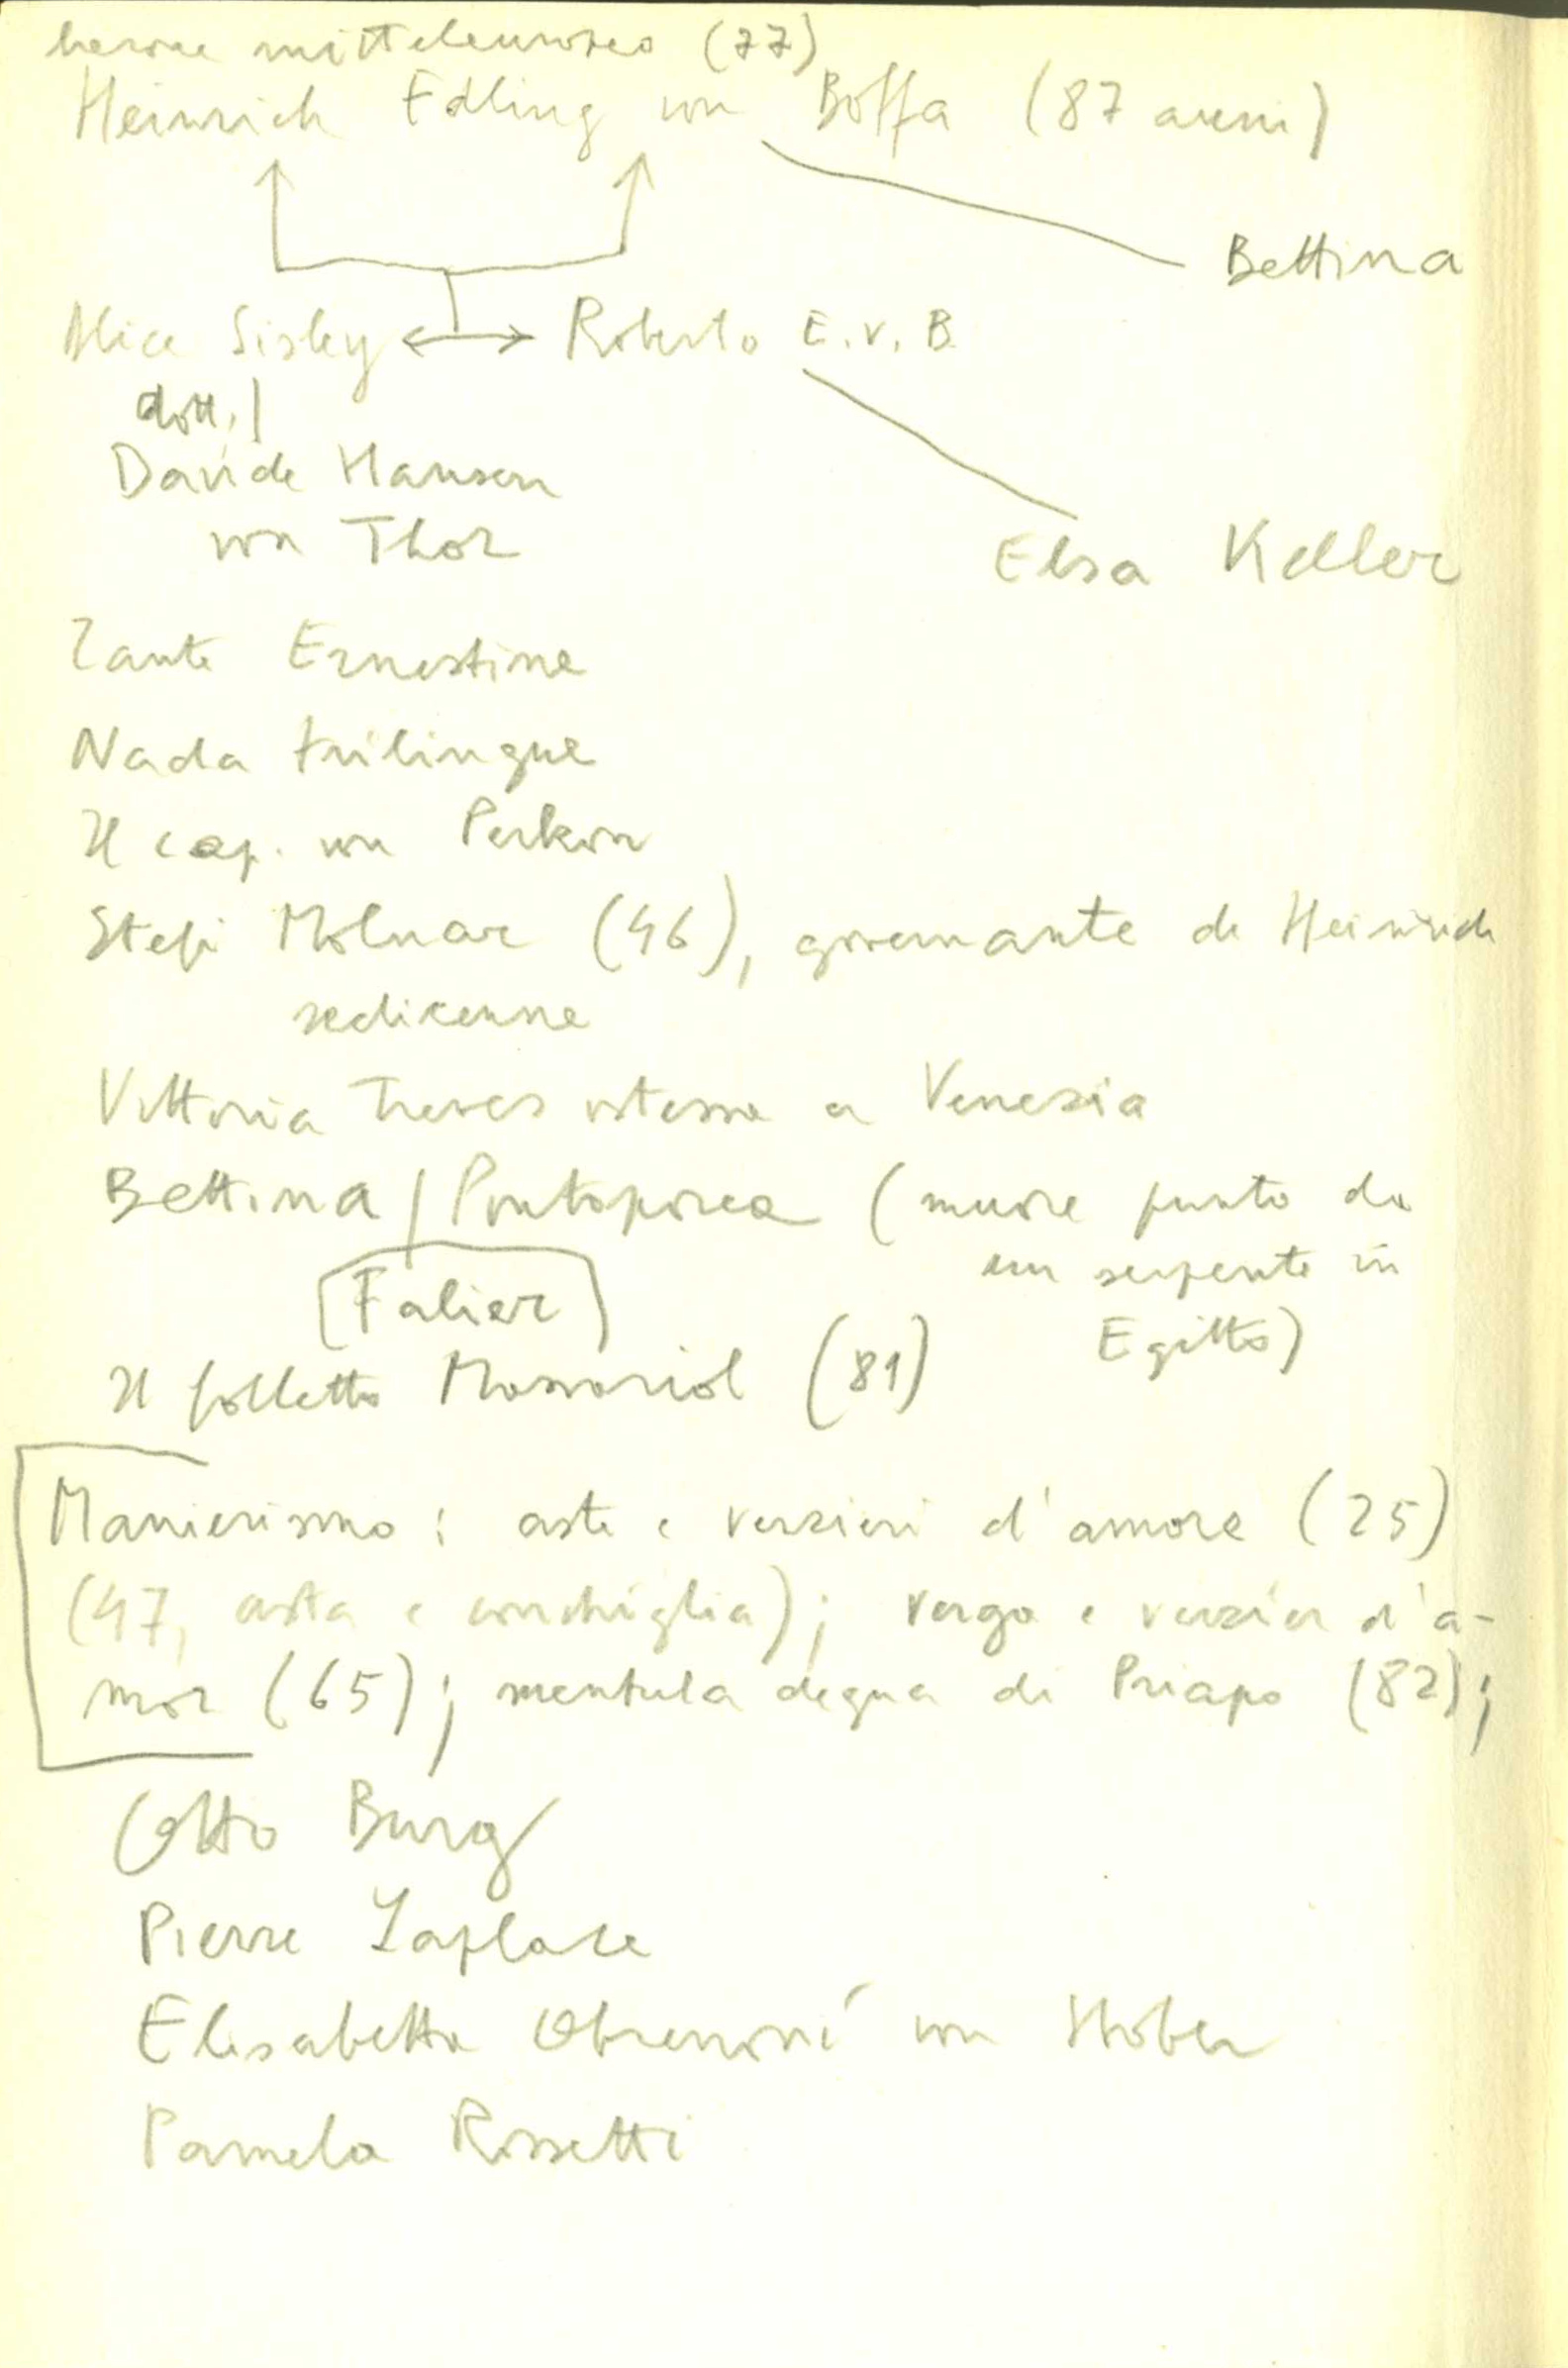 barone mitteleuropeo (77)
Heinrich Edling von Boffa (87 anni)
Bettina
Alice Sisley ↔ Roberto E. v. B.
dott.
Davide Hansen
von Thor
Elsa Keller
Tante Ernestine
Nada trilingue
Il cap. von Perkon
Stefi Molnar (46), governante di Heinrich
sedicenne
Vittoria Treves ostessa a Venezia
Bettina / Pontoporea (muore punta da
un serpente in
[Falier]
Egitto)
Il folletto Massariol (81)
Manierismo: aste e verzieri d'amore (25)
(47, asta e conchiglia); verga e verzier d'a-
mor (65); mentula degna di Priapo (82);
Otto Burg
Pierre Laplace
Elisabetta von
Pamela Rossetti